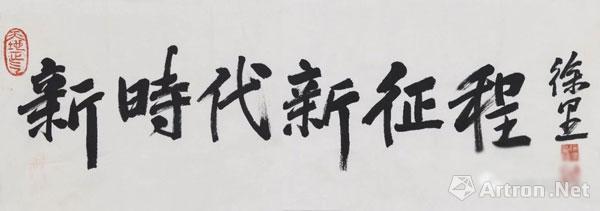 新時代新征程
徐里
Artron.Net